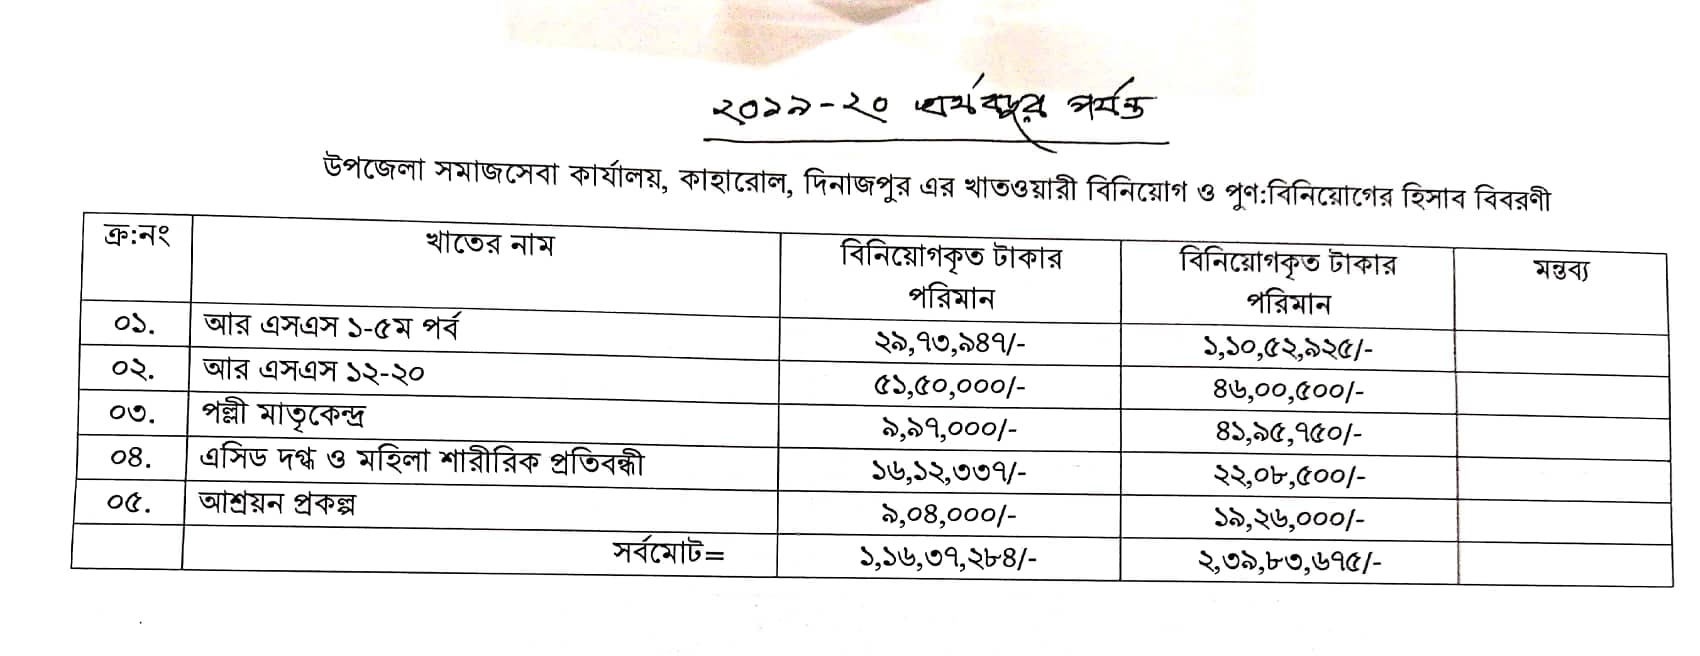 ২০১৯-২০ অর্থবছর পর্যন্ত
উপজেলা সমাজসেবা কার্যালয়, কাহারোল, দিনাজপুর এর খাতওয়ারী বিনিয়োগ ও পুণ:বিনিয়োগের হিসাব বিবরণী
ক্র:নং খাতের নাম বিনিয়োগকৃত টাকার পরিমান বিনিয়োগকৃত টাকার পরিমান মন্তব্য
০১. আর এসএস ১-৫ম পর্ব ২৯,৭৩,৯৪৭/- ১,১০,৫২,৯২৫/-
০২. আর এসএস ১২-২০ ৫১,৫০,০০০/- ৪৬,০০,৫০০/-
০৩. পল্লী মাতৃকেন্দ্র ৯,৯৭,০০০/- ৪১,৯৫,৭৫০/-
০৪. এসিড দগ্ধ ও মহিলা শারীরিক প্রতিবন্ধী ১৬,১২,৩৩৭/- ২২,০৮,৫০০/-
০৫. আশ্রয়ন প্রকল্প ৯,০৪,০০০/- ১৯,২৬,০০০/-
সর্বমোট= ১,১৬,৩৭,২৮৪/- ২,৩৯,৮৩,৬৭৫/-